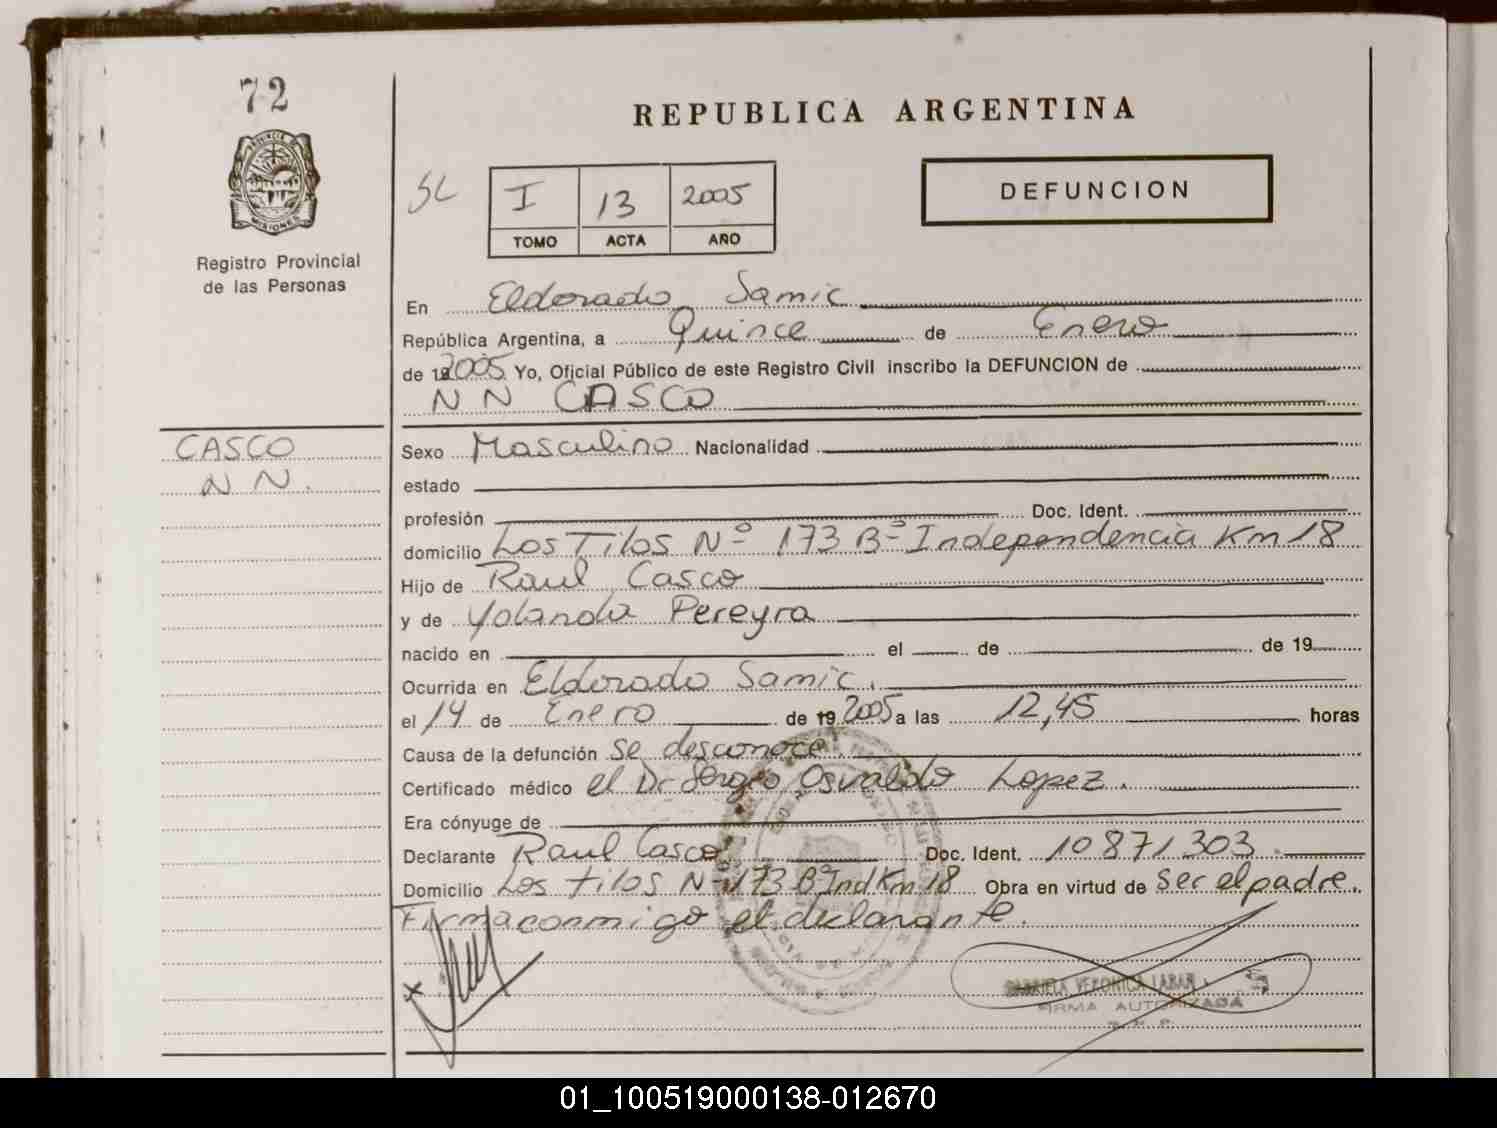 72
REPUBLICA ARGENTINA
DEFUNCION
SL
I 13 2005
TOMO ACTA AÑO
MISIONES
Registro Provincial
de las Personas
En Eldorado Samic
República Argentina, a Quince de Enero
de 2005 Yo, Oficial Público de este Registro Civil inscribo la DEFUNCION de
N N CASCO
CASCO
N N.
Sexo Masculino Nacionalidad
estado
profesión Doc. Ident.
domicilio Los Tilos Nº 173 Bº Independencia Km 18
Hijo de Raul Casco
y de Yolanda Pereyra
nacido en el de de 19
Ocurrida en Eldorado Samic.
el 14 de Enero de 19 2005 a las 12,45 horas
Causa de la defunción se desconoce
Certificado médico el Dr Sergio Osvaldo Lopez.
Era cónyuge de
Declarante Raul Casco Doc. Ident. 10871303.
Domicilio Los tilos Nº 173 Bº Ind Km 18 Obra en virtud de ser el padre.
Firma conmigo el declarante.
x
GABRIELA VERONICA
FIRMA AUTORIZADA
01_100519000138-012670